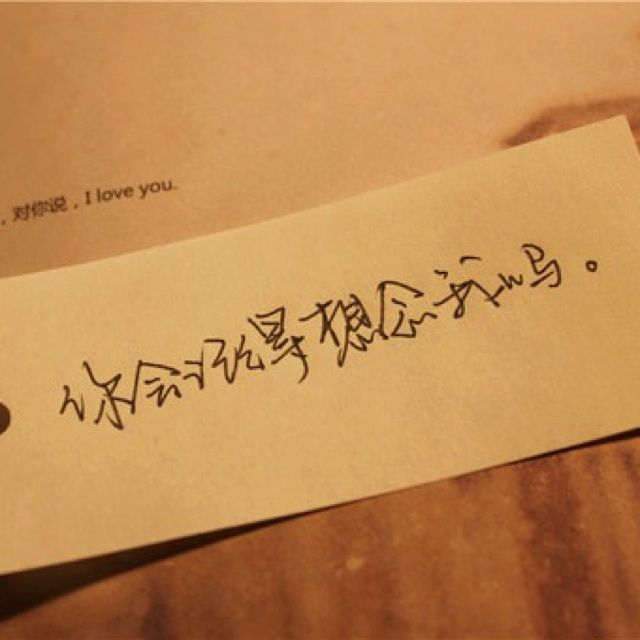 ,对你说,I love you.
你会想念我吗。